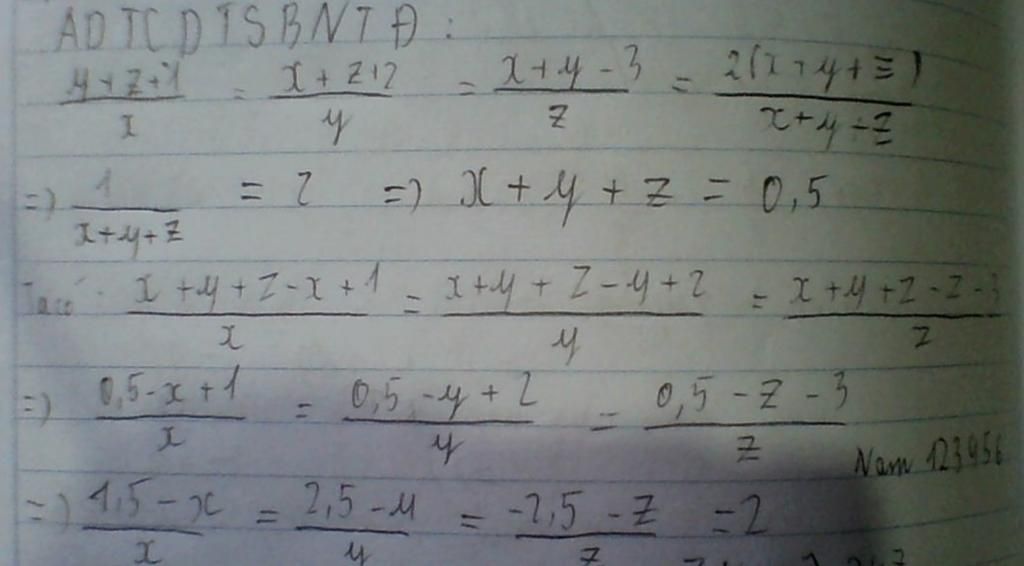 ADTCDTSBNTĐ:
(y+z+1)/x = (x+z+2)/y = (x+y-3)/z = 2(x+y+z)/(x+y+z)
=) 1/(x+y+z) = 2 =) x+y+z = 0,5
Ta có: (x+y+z-x+1)/x = (x+y+z-y+2)/y = (x+y+z-z-3)/z
=) (0,5-x+1)/x = (0,5-y+2)/y = (0,5-z-3)/z
Nam 123456
=) (1,5-x)/x = (2,5-y)/y = (-2,5-z)/z = 2